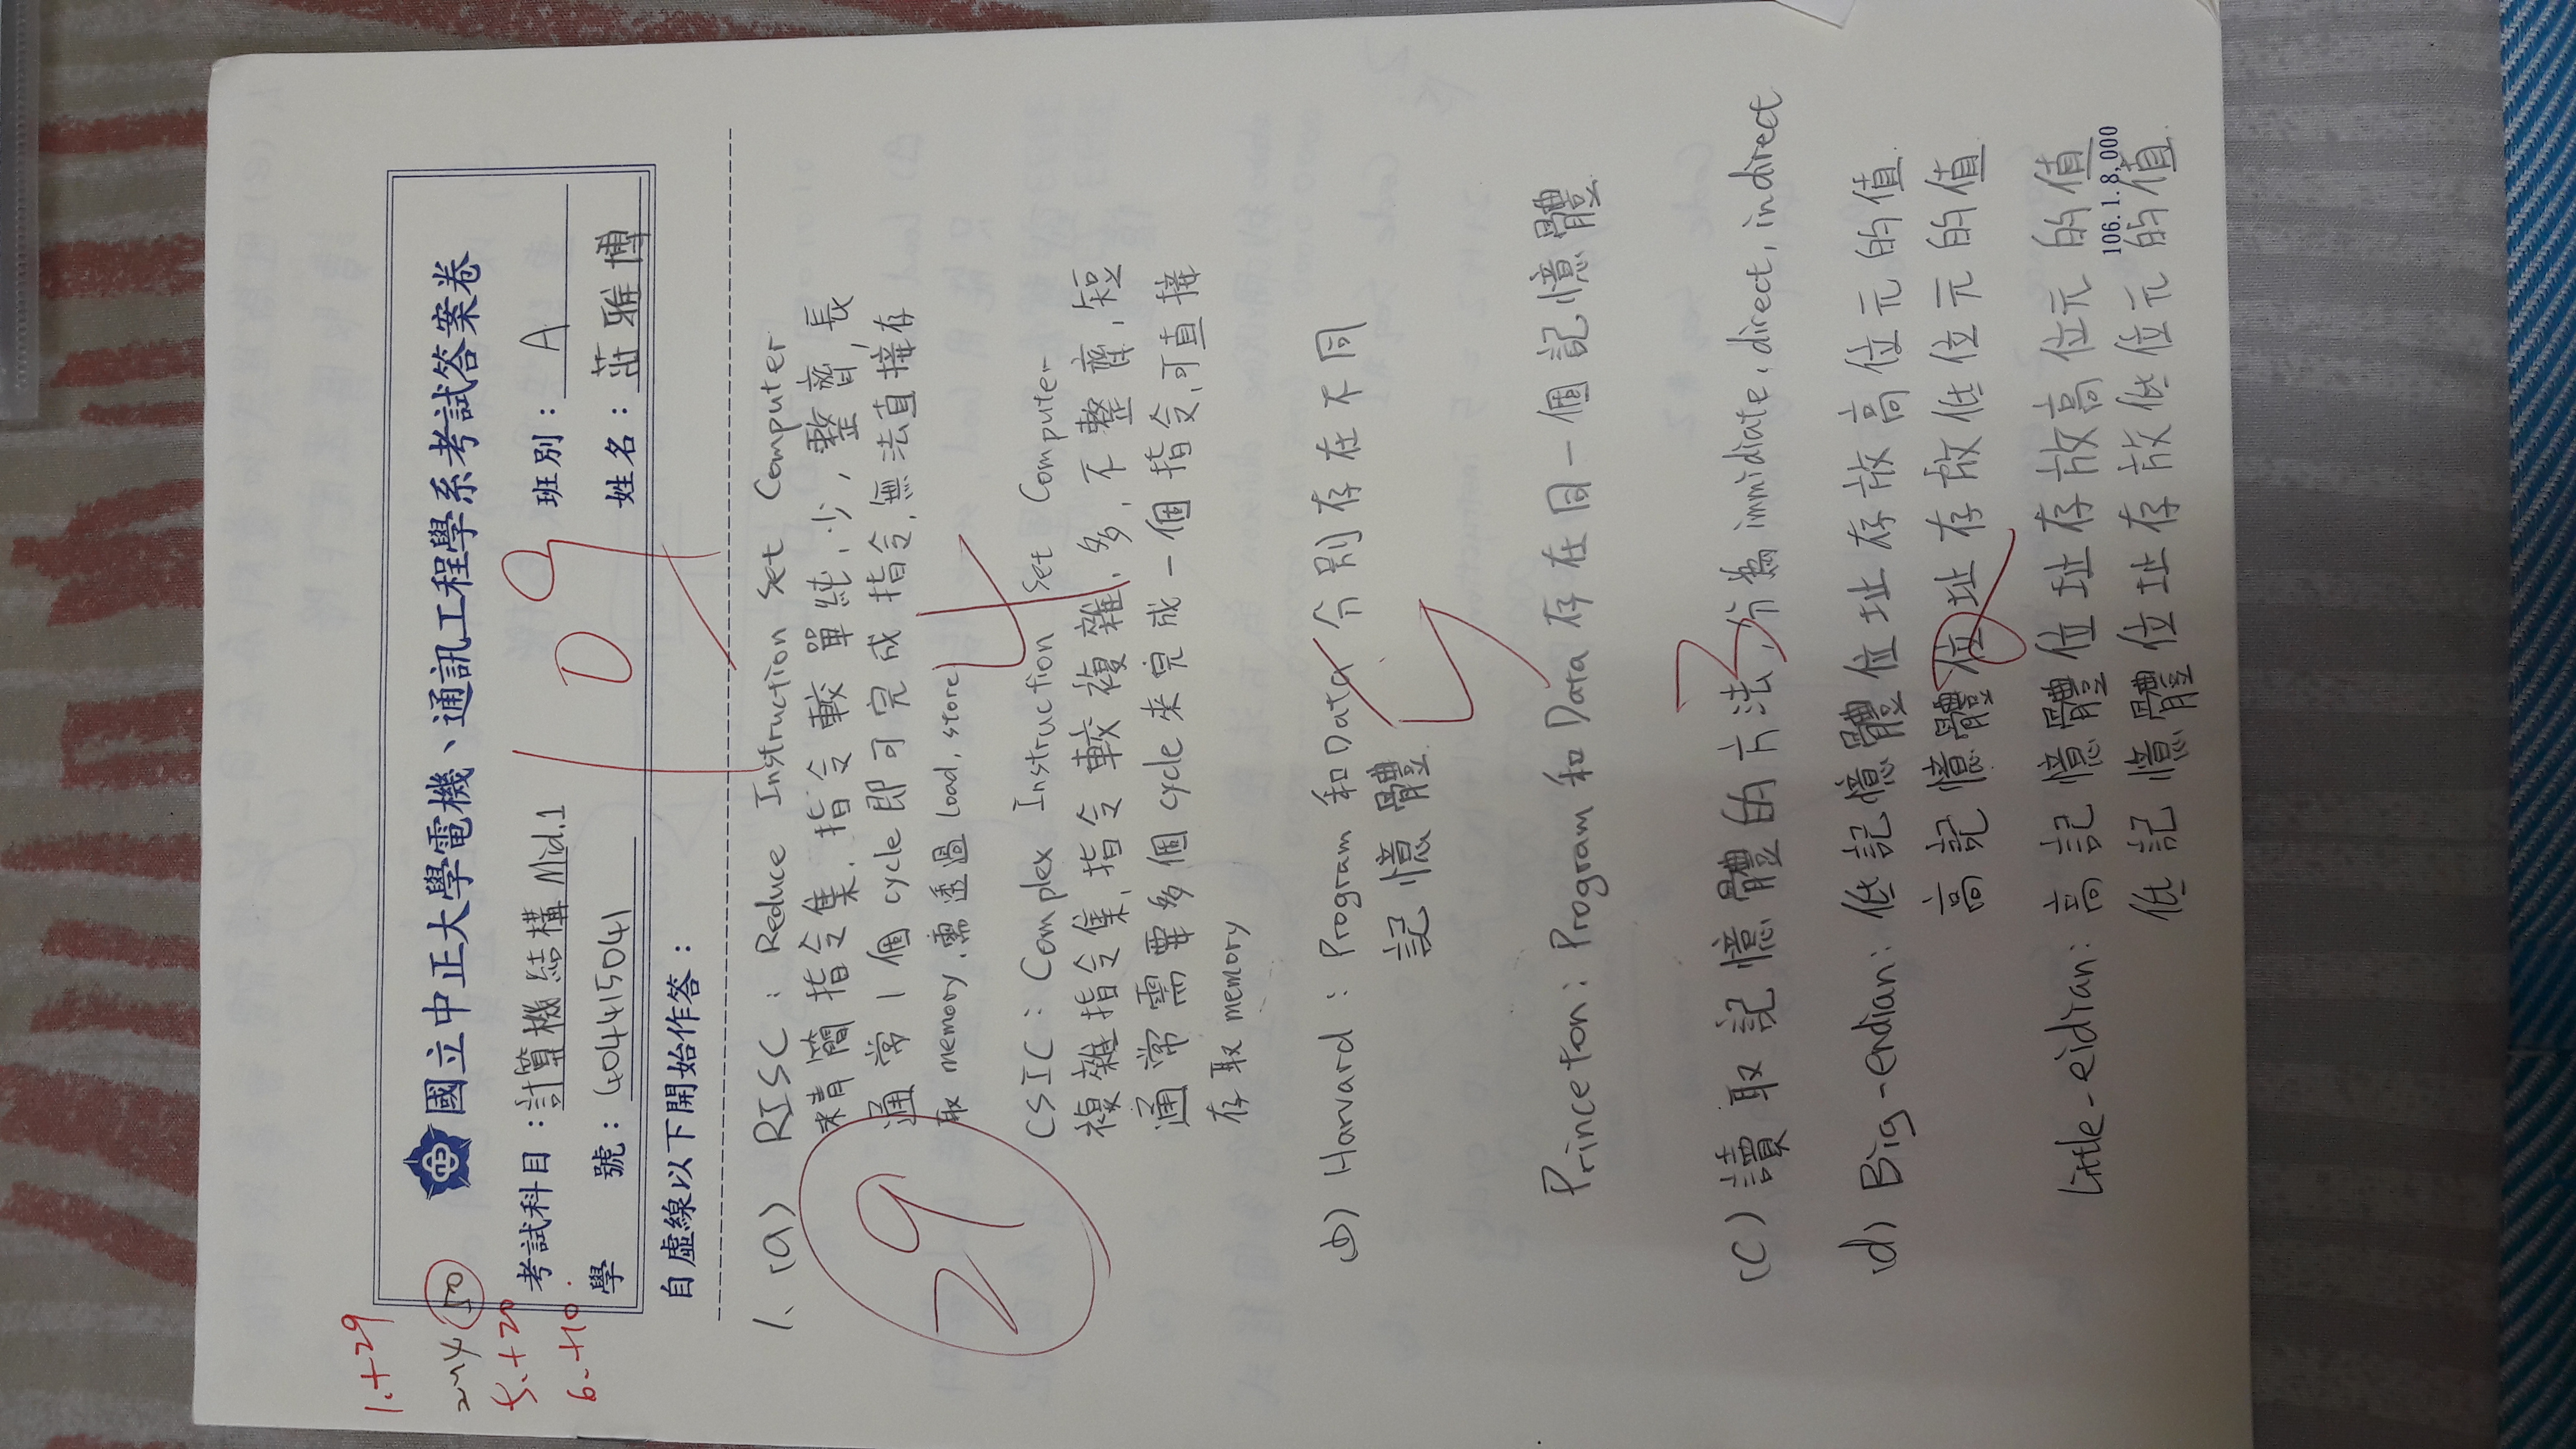 1.+29
2~4 50
5.+20
6.+10
國立中正大學電機、通訊工程學系考試答案卷
考試科目：計算機結構 Mid.1
班別：A
學 號：404415041
姓名：莊雅博
109
自虛線以下開始作答：
1. (a) RISC : Reduce Instruction Set Computer
精簡指令集, 指令較單純, 少, 整齊, 長
29
通常1個cycle即可完成指令, 無法直接存
取 memory, 需透過 load, store
4
CSIC : Complex Instruction Set Computer
複雜指令集, 指令較複雜, 多, 不整齊, 短
通常需要多個cycle來完成一個指令, 可直接
存取 memory
(b) Harvard : Program 和 Data 分別存在不同
記憶體
5
Princeton : Program 和 Data 存在同一個記憶體
3
(c) 讀取記憶體的方法, 分為 immidiate, direct, indirect
(d) Big-endian : 低記憶體位址存放高位元的值.
高記憶體位址存放低位元的值
2
Little-eidian : 高記憶體位址存放高位元的值
106.1.8,000
低記憶體位址存放低位元的值.